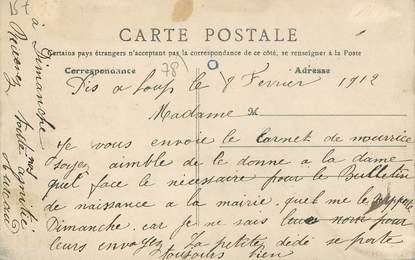 CARTE POSTALE
Certains pays étrangers n'acceptant pas la correspondance de ce côté, se renseigner à la Poste
Correspondance
Adresse
78
Dis a Loup le 8 Fevrier 1912
Madame M
Je vous envoie le carnet de nourrice
soyez aimble de le donne a la dame
quel face le nécessaire pour le Bulletin
de naissance a la mairie. quel me le
Dimanche. car je ne sais leur nom pour
leurs envoyez La petite dédé se porte
toujours bien
à Dimanche
Recevez toute nos
amitié